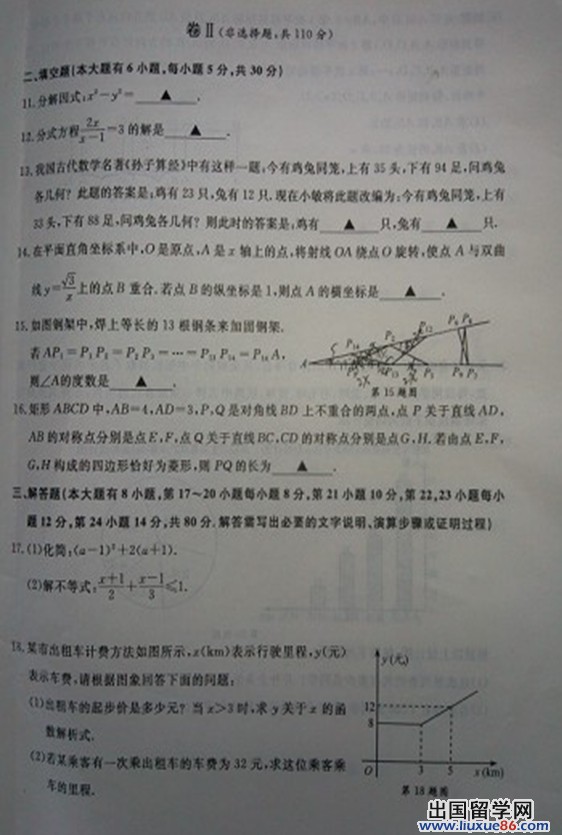 卷Ⅱ(非选择题,共110分)
二、填空题(本大题有6小题,每小题5分,共30分)
11.分解因式:x²-y²=▲.
12.分式方程2x/(x-1)=3的解是▲.
13.我国古代数学名著《孙子算经》中有这样一题:今有鸡兔同笼,上有35头,下有94足,问鸡兔
各几何?此题的答案是:鸡有23只,兔有12只.现在小敏将此题改编为:今有鸡兔同笼,上有
33头,下有88足,问鸡兔各几何?则此时的答案是:鸡有▲只,兔有▲只.
14.在平面直角坐标系中,O是原点,A是x轴上的点,将射线OA绕点O旋转,使点A与双曲
线y=√3/x上的点B重合.若点B的纵坐标是1,则点A的横坐标是▲.
15.如图钢架中,焊上等长的13根钢条来加固钢架.
若AP₁=P₁P₂=P₂P₃=…=P₁₃P₁₄=P₁₄A,
则∠A的度数是▲.
A P₁₄ P₂ P₁₂ P₄ P₆ P₁₃ P₃ P₅
第15题图
16.矩形ABCD中,AB=4,AD=3,P,Q是对角线BD上不重合的两点,点P关于直线AD,
AB的对称点分别是点E,F,点Q关于直线BC,CD的对称点分别是点G,H.若由点E,F,
G,H构成的四边形恰好为菱形,则PQ的长为▲.
三、解答题(本大题有8小题,第17~20小题每小题8分,第21小题10分,第22,23小题每小
题12分,第24小题14分,共80分.解答需写出必要的文字说明、演算步骤或证明过程)
17.(1)化简:(a-1)²+2(a+1).
(2)解不等式:(x+1)/2+(x-1)/3≤1.
18.某市出租车计费方法如图所示,x(km)表示行驶里程,y(元)
表示车费,请根据图象回答下面的问题:
(1)出租车的起步价是多少元?当x>3时,求y关于x的函
数解析式.
(2)若某乘客有一次乘出租车的车费为32元,求这位乘客乘
车的里程.
y(元)
12
8
O 3 5 x(km)
第18题图
出国留学网
www.liuxue86.com